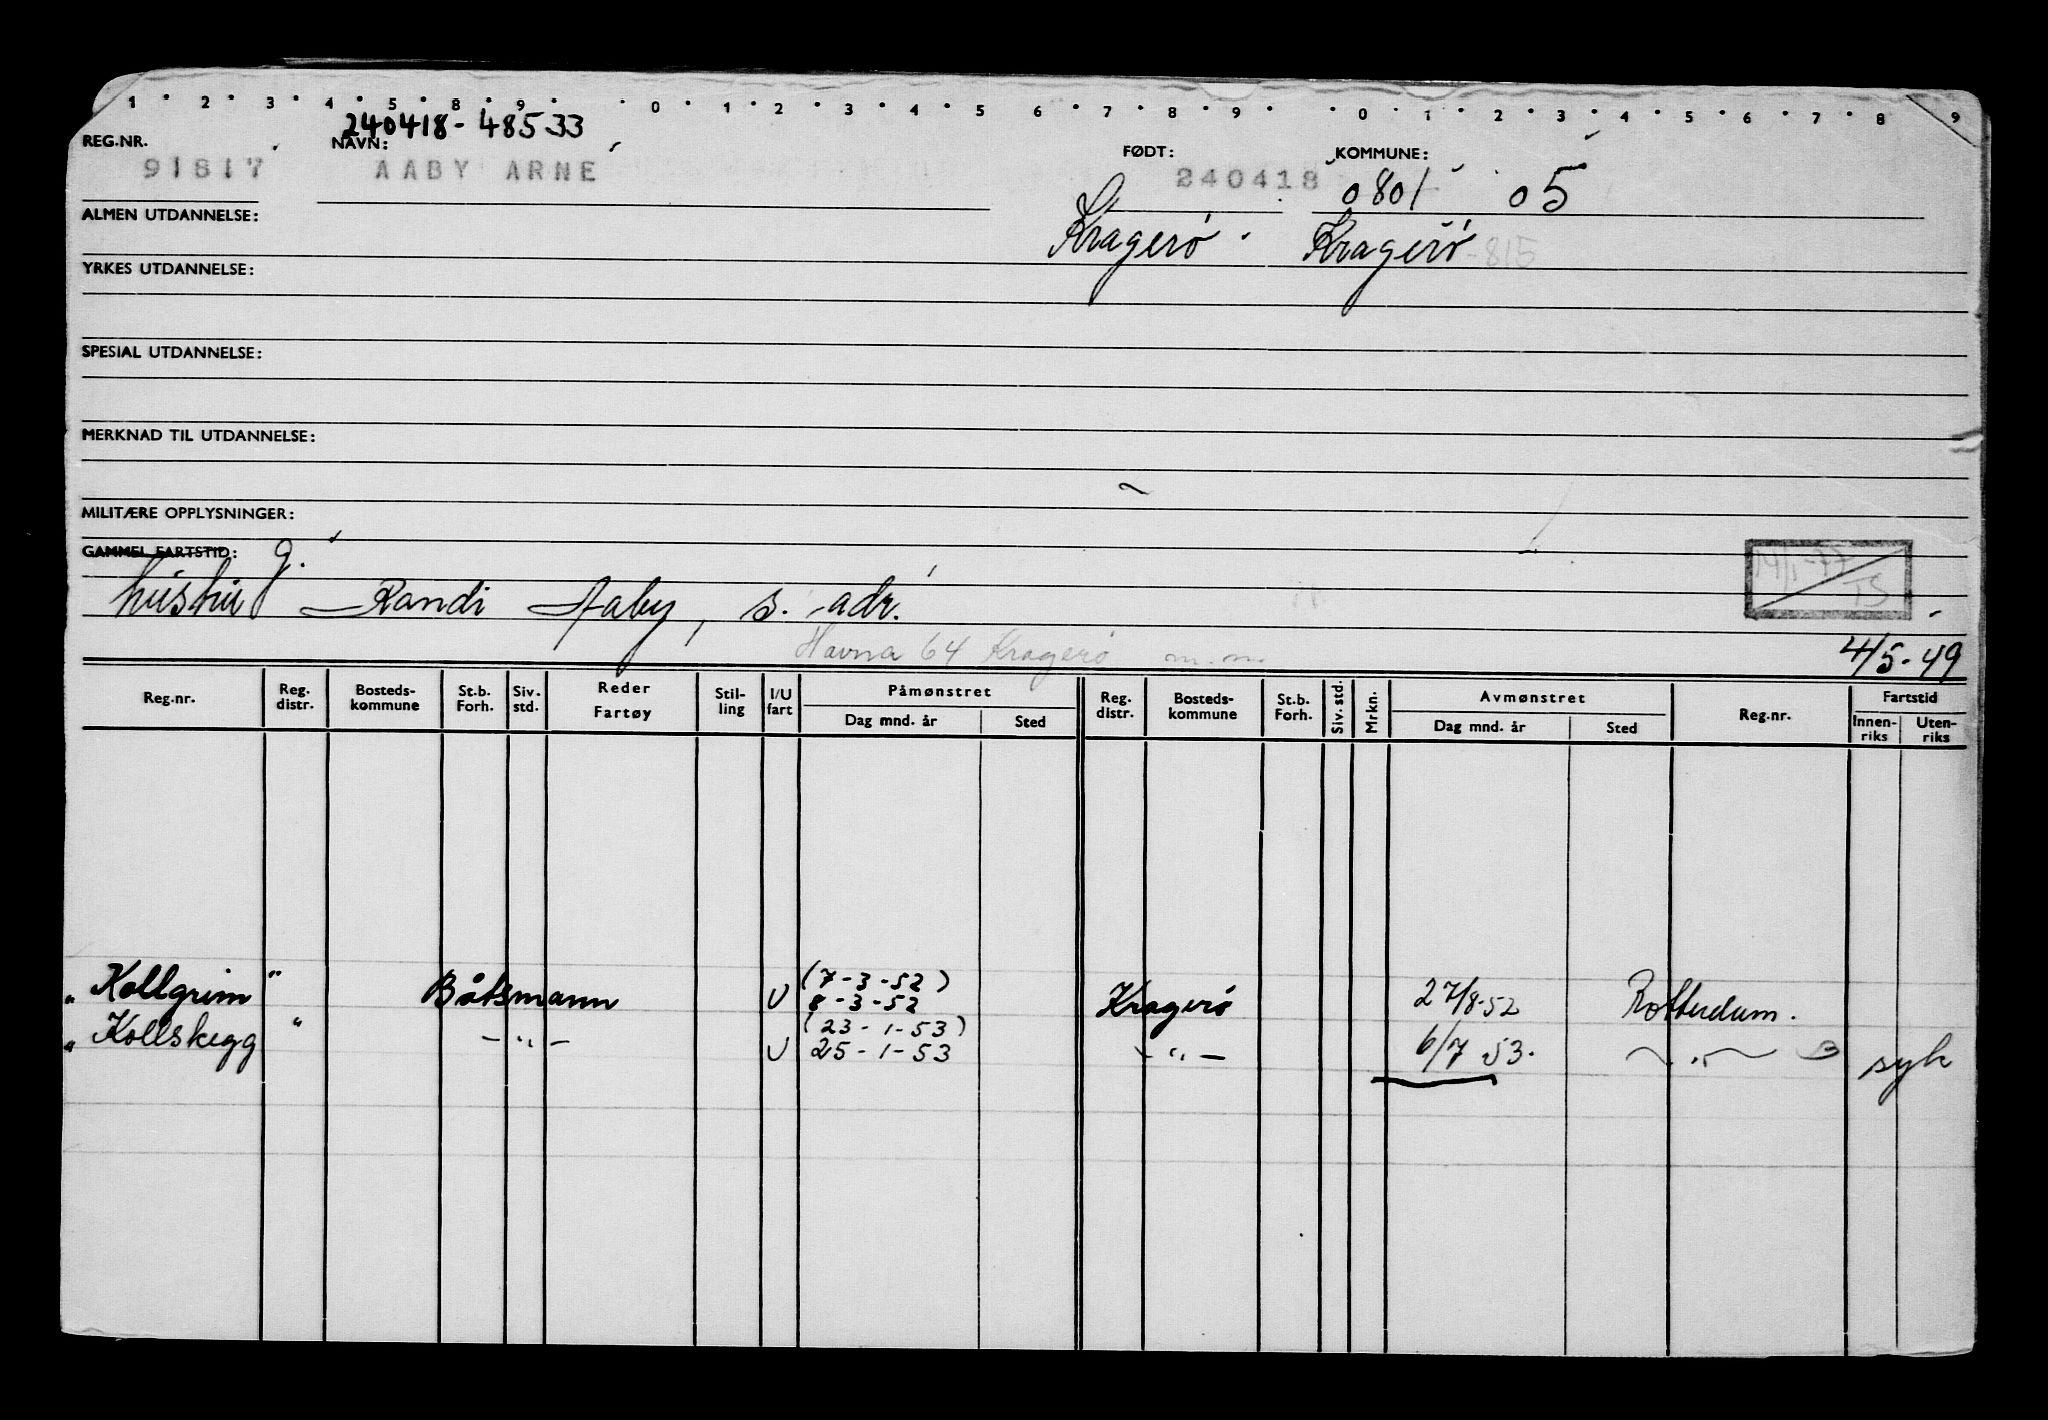 1 2 3 4 5 8 9 0 1 2 3 4 5 6 7 8 9 0 1 2 3 4 5 6 7 8 9
240418-48533
REG.NR. NAVN: FØDT: KOMMUNE:
91817 AABY ARNE 240418 0801 05
ALMEN UTDANNELSE: Kragerö Kragerö -815
YRKES UTDANNELSE:
SPESIAL UTDANNELSE:
MERKNAD TIL UTDANNELSE:
MILITÆRE OPPLYSNINGER:
GAMMEL FARTSTID: g.
14/1-77
TS
hushu Randi Aaby, s. adr.
Havna 64 Kragerø m.m.
4/5-49
Reg.nr. Reg. distr. Bosteds-kommune St.b. Forh. Siv. std. Reder Fartøy Stil-ling I/U fart Påmønstret Dag mnd. år Sted Reg. distr. Bosteds-kommune St.b. Forh. Siv. std. Mrkn. Avmønstret Dag mnd. år Sted Reg.nr. Fartstid Innen-riks Uten-riks
(7-3-52)
"Kollgrim" Båtsmann U 8-3-52 Kragerö 27/8-52 Rotterdam.
(23-1-53)
"Kollskegg" -"- U 25-1-53 -"- 6/7 53. -"- syk